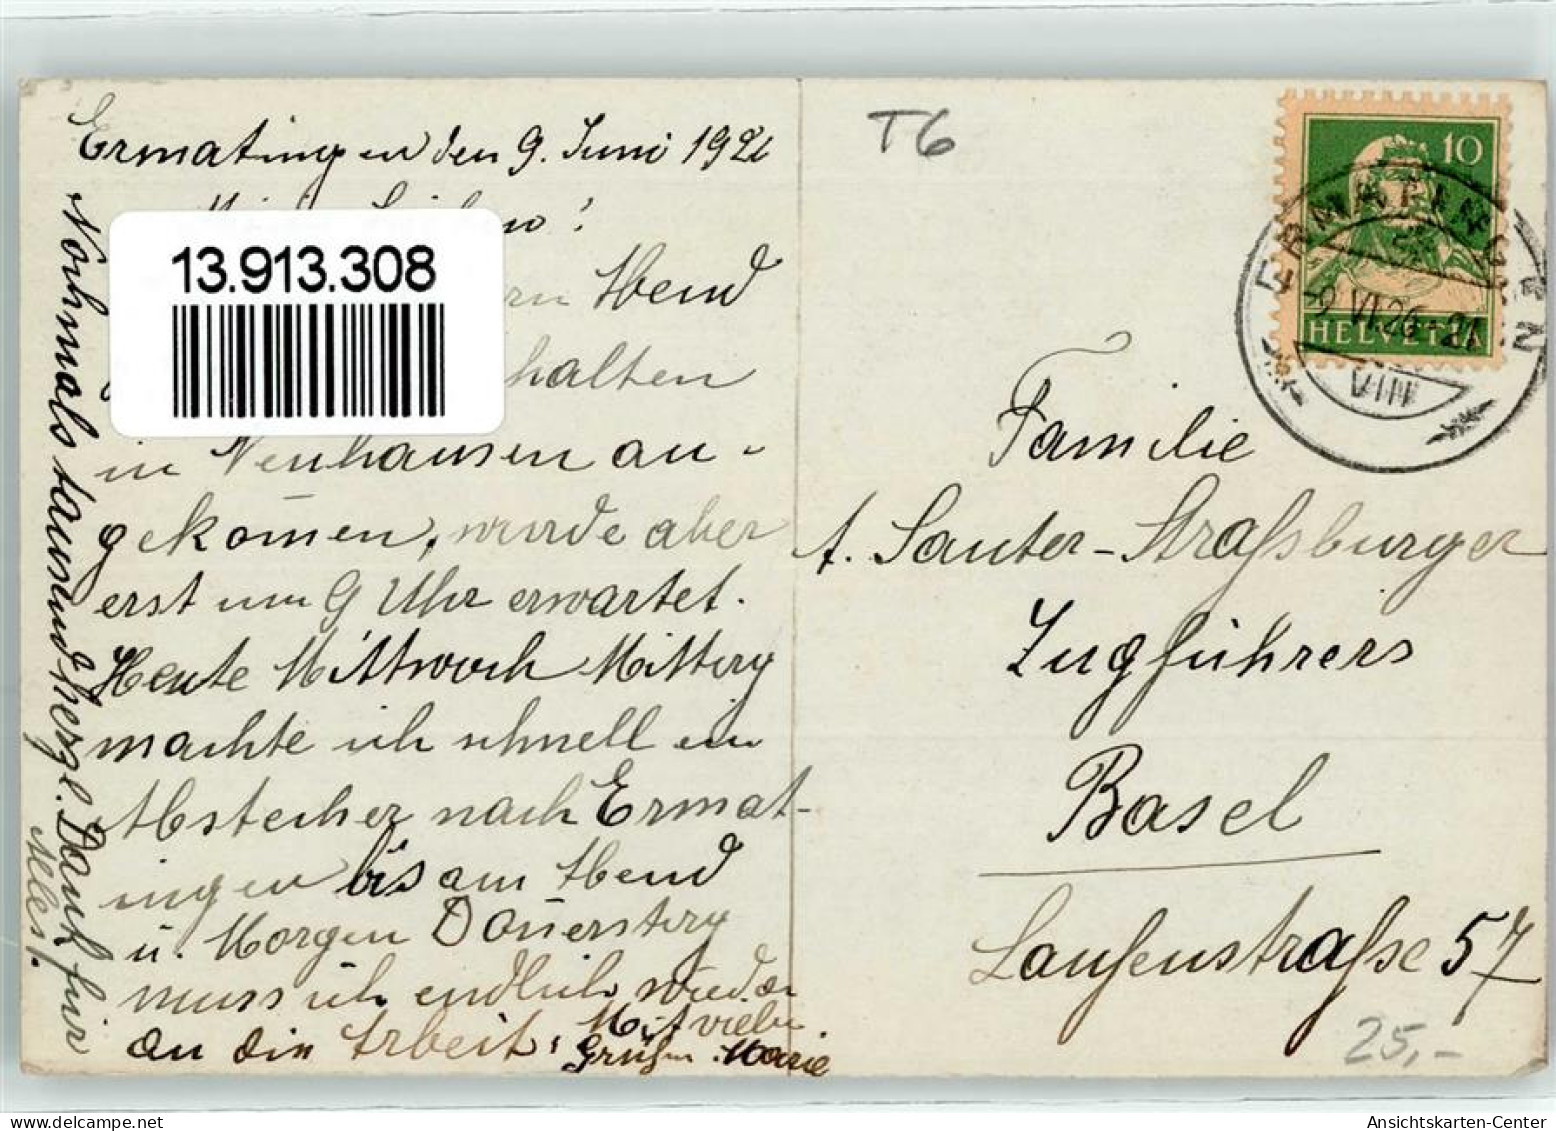 Ermatingen den 9. Juni 1926
13.913.308
Abend
halten
in Neuhausen an-
gekom̄en, wurde aber
erst um 9 Uhr erwartet.
Heute Mittwoch Mittag
machte ich schnell ein
Abstecher nach Ermat-
ingen bis am Abend
u. Morgen Don̄erstag
muss ich endlich wieder
an die Arbeit.
Mit vielen
Grüßen Marie
Nochmals tausend herzl. Dank für
Alles!
T6
10
HELVETIA
ERMATINGEN
-9.VI.26-21
VIII
Familie
A. Sauter-Straßburger
Zugführers
Basel
Laufenstraße 57
25,-
Ansichtskarten-Center